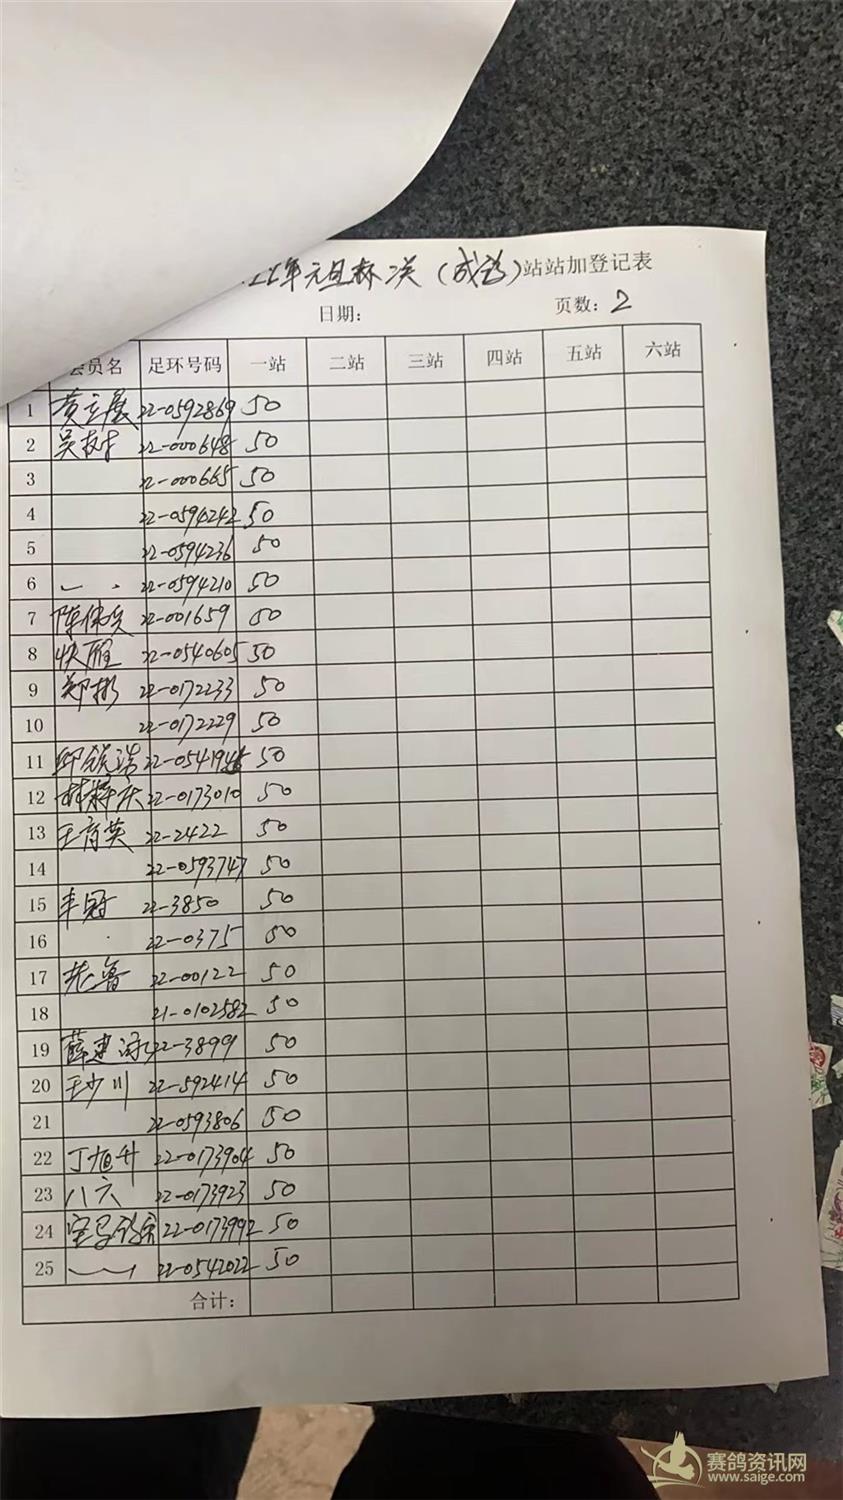 22年元旦杯二关(成鸽)站站加登记表
日期: 页数: 2
会员名 足环号码 一站 二站 三站 四站 五站 六站
1 黄立展 22-0592869 50
2 吴树 22-000648 50
3 22-000665 50
4 22-0594242 50
5 22-0594236 50
6 22-0594210 50
7 陈伟 22-001659 50
8 快雁 22-0540605 50
9 郑彬 22-0172233 50
10 22-0172229 50
11 邱 浩 22-054194 50
12 林 22-0173010 50
13 王育英 22-2422 50
14 22-0593747 50
15 丰冠 22-3850 50
16 22-0375 50
17 22-00122 50
18 21-0102582 50
19 薛建 22-3899 50
20 王少川 22-592414 50
21 22-0593806 50
22 丁旭升 22-0173904 50
23 八六 22-0173923 50
24 宝马 22-0173992 50
25 22-0542022 50
合计:
赛鸽资讯网
www.saige.com